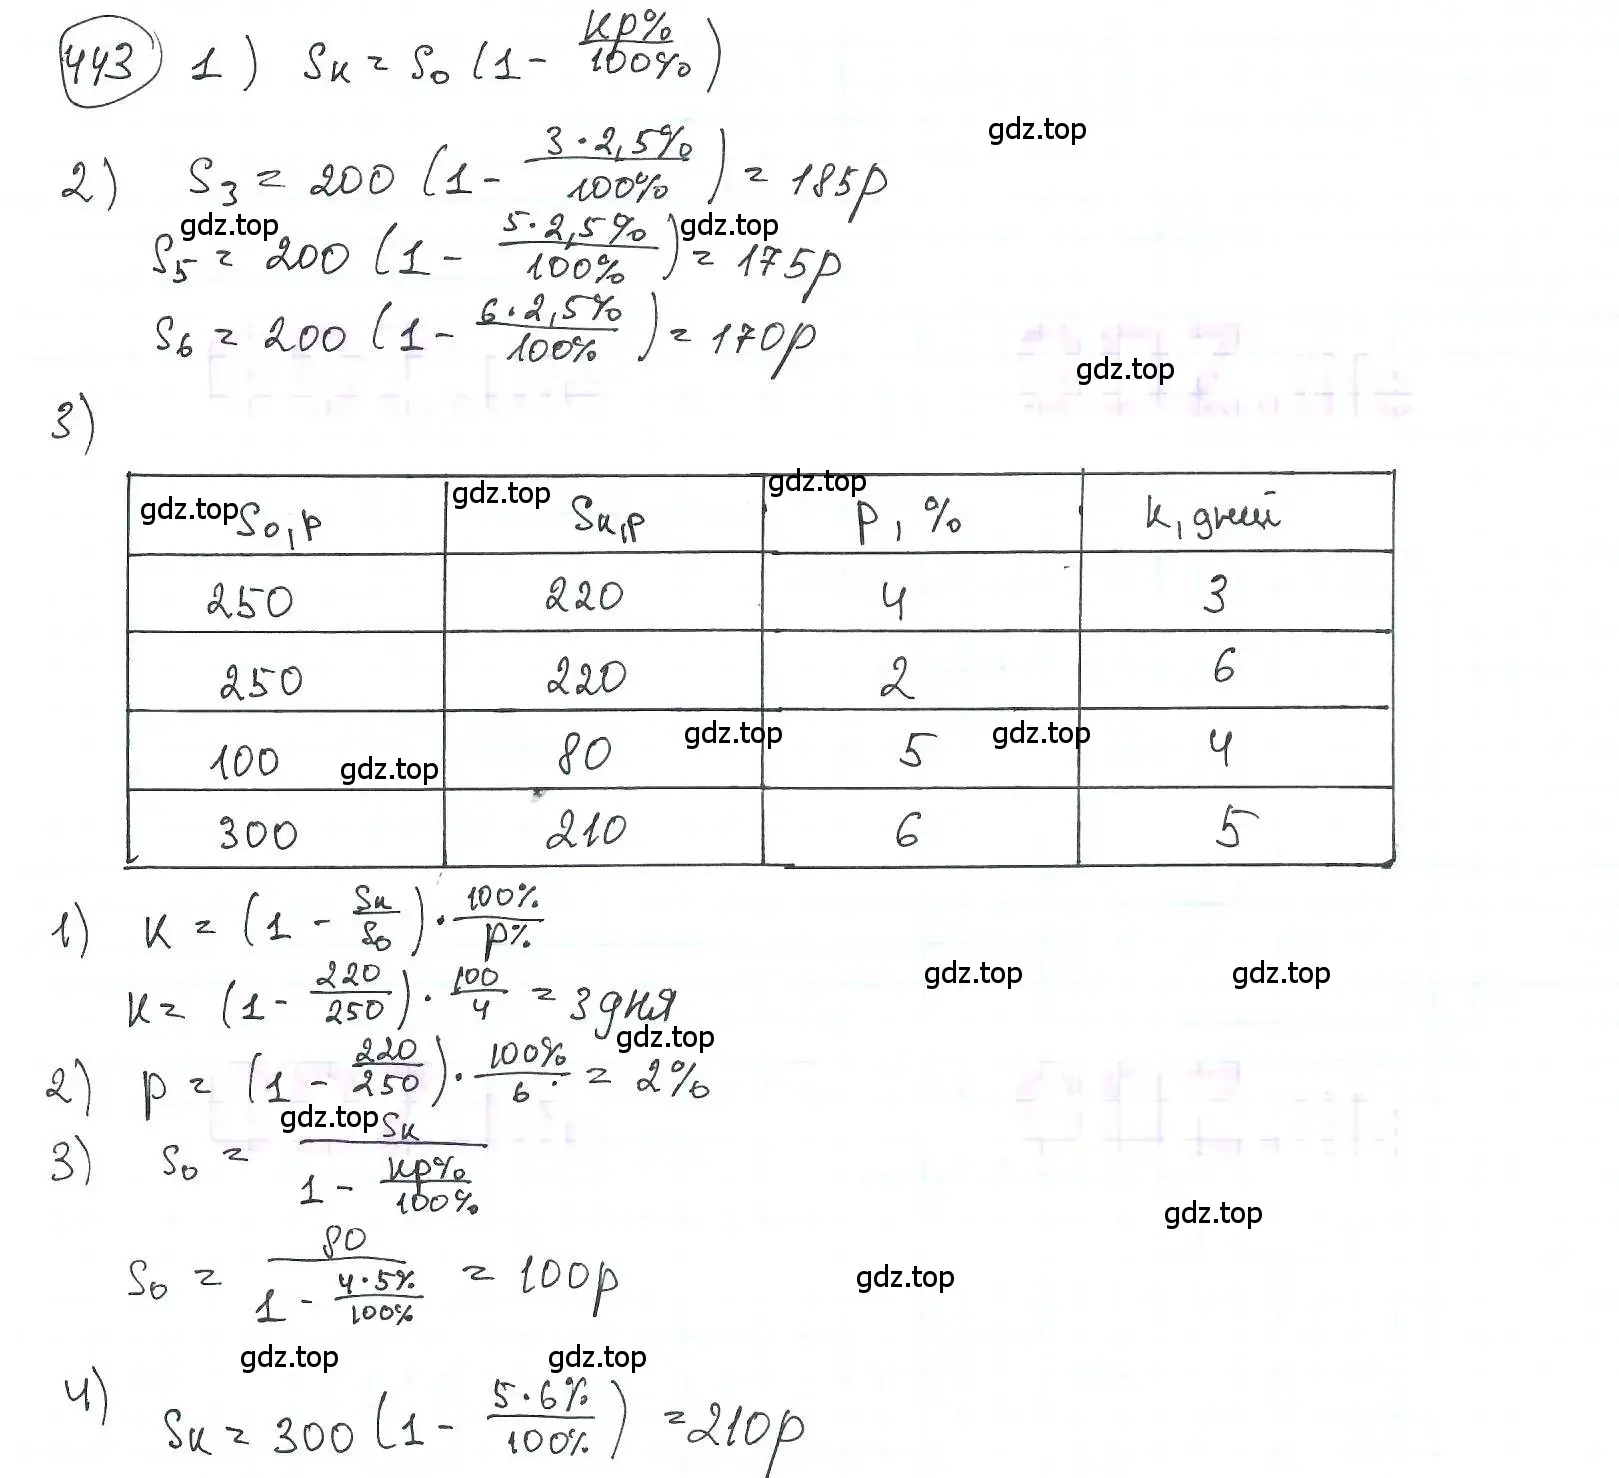 443 1) Sк = S₀ (1 - кр%/100%)
gdz.top
2) S₃ = 200 (1 - 3·2,5%/100%) = 185р
gdz.top gdz.top
S₅ = 200 (1 - 5·2,5%/100%) = 175р
S₆ = 200 (1 - 6·2,5%/100%) = 170р
gdz.top
3)
gdz.top gdz.top gdz.top
S₀,р Sк,р р, % к, дней
250 220 4 3
250 220 2 6
gdz.top gdz.top
100 80 5 4
gdz.top
300 210 6 5
1) к = (1 - Sк/S₀) · 100%/р%
gdz.top gdz.top
к = (1 - 220/250) · 100/4 = 3 дня
gdz.top
2) р = (1 - 220/250) · 100%/6 = 2%
gdz.top
3) S₀ = Sк/(1 - кр%/100%)
gdz.top
S₀ = 80/(1 - 4·5%/100%) = 100р
gdz.top
gdz.top gdz.top
4) Sк = 300 (1 - 5·6%/100%) = 210р